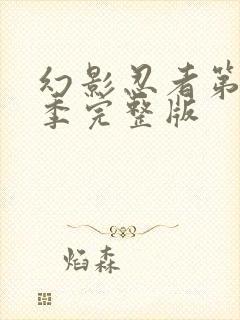 幻影忍者第
季完整版
焰森